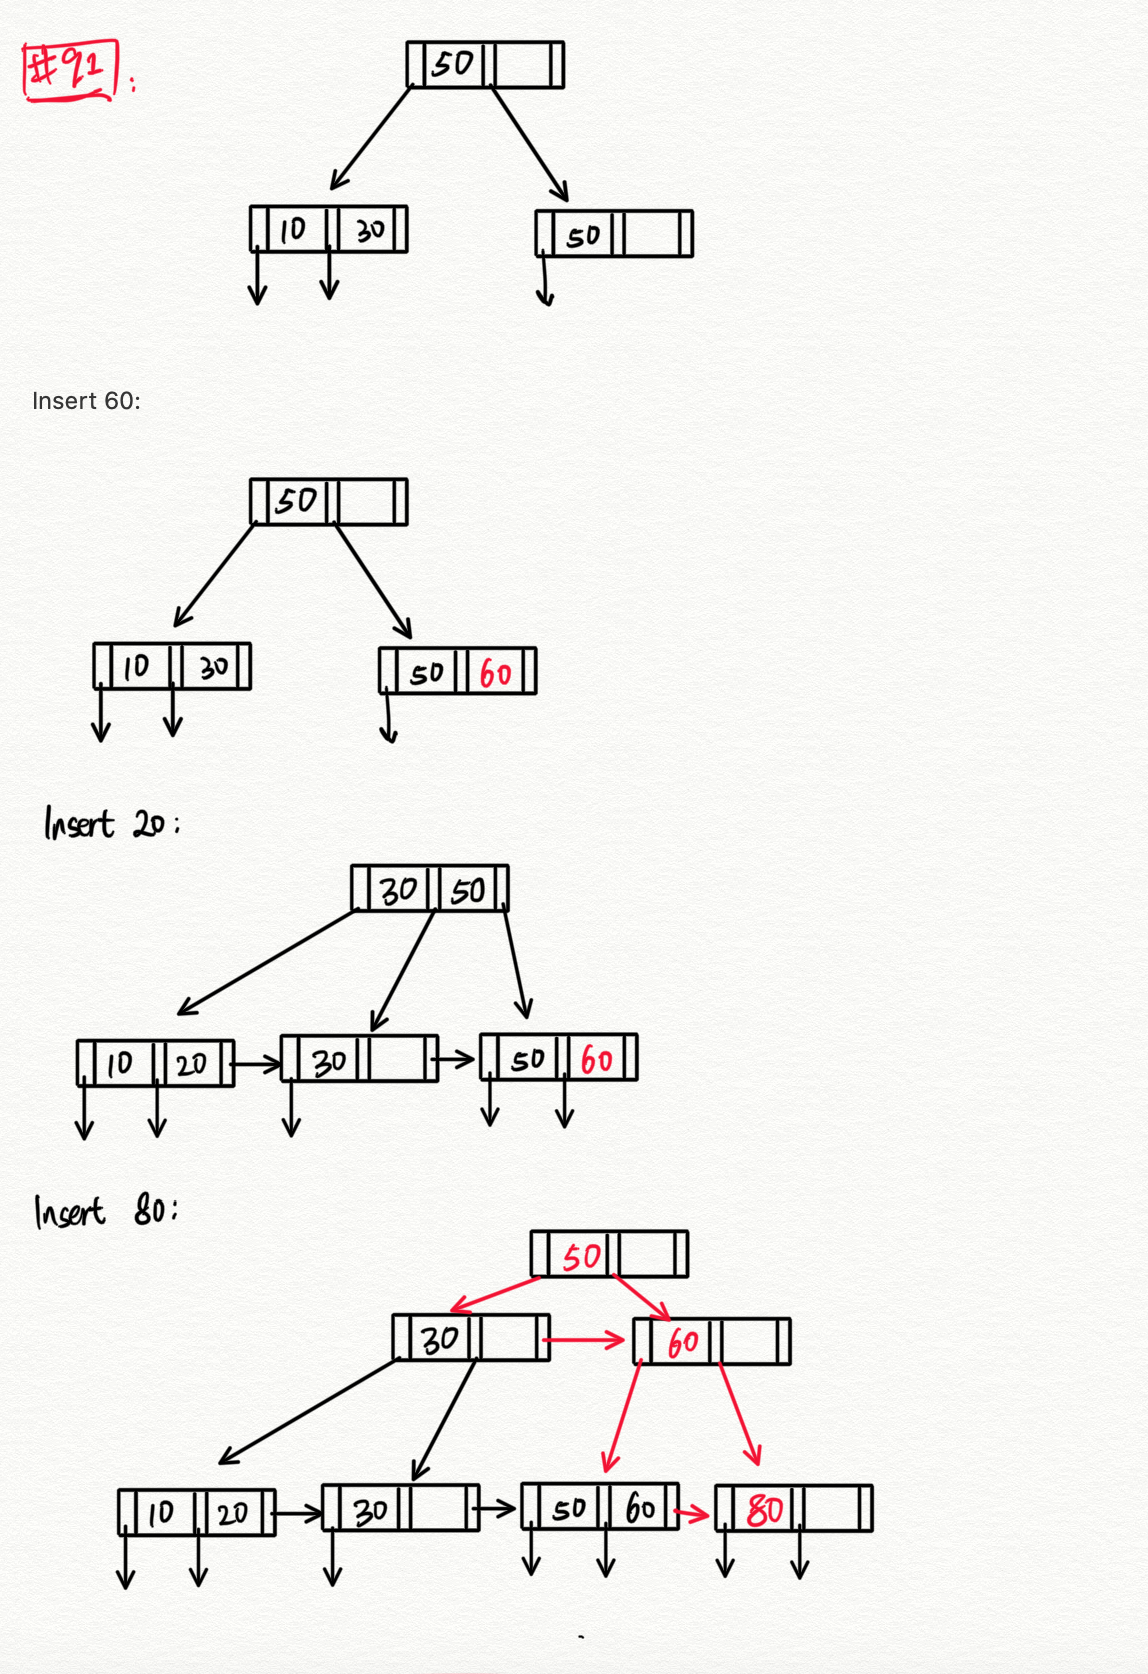 #91:
50
10 30 50
Insert 60:
50
10 30 50 60
Insert 20:
30 50
10 20 30 50 60
Insert 80:
50
30 60
10 20 30 50 60 80